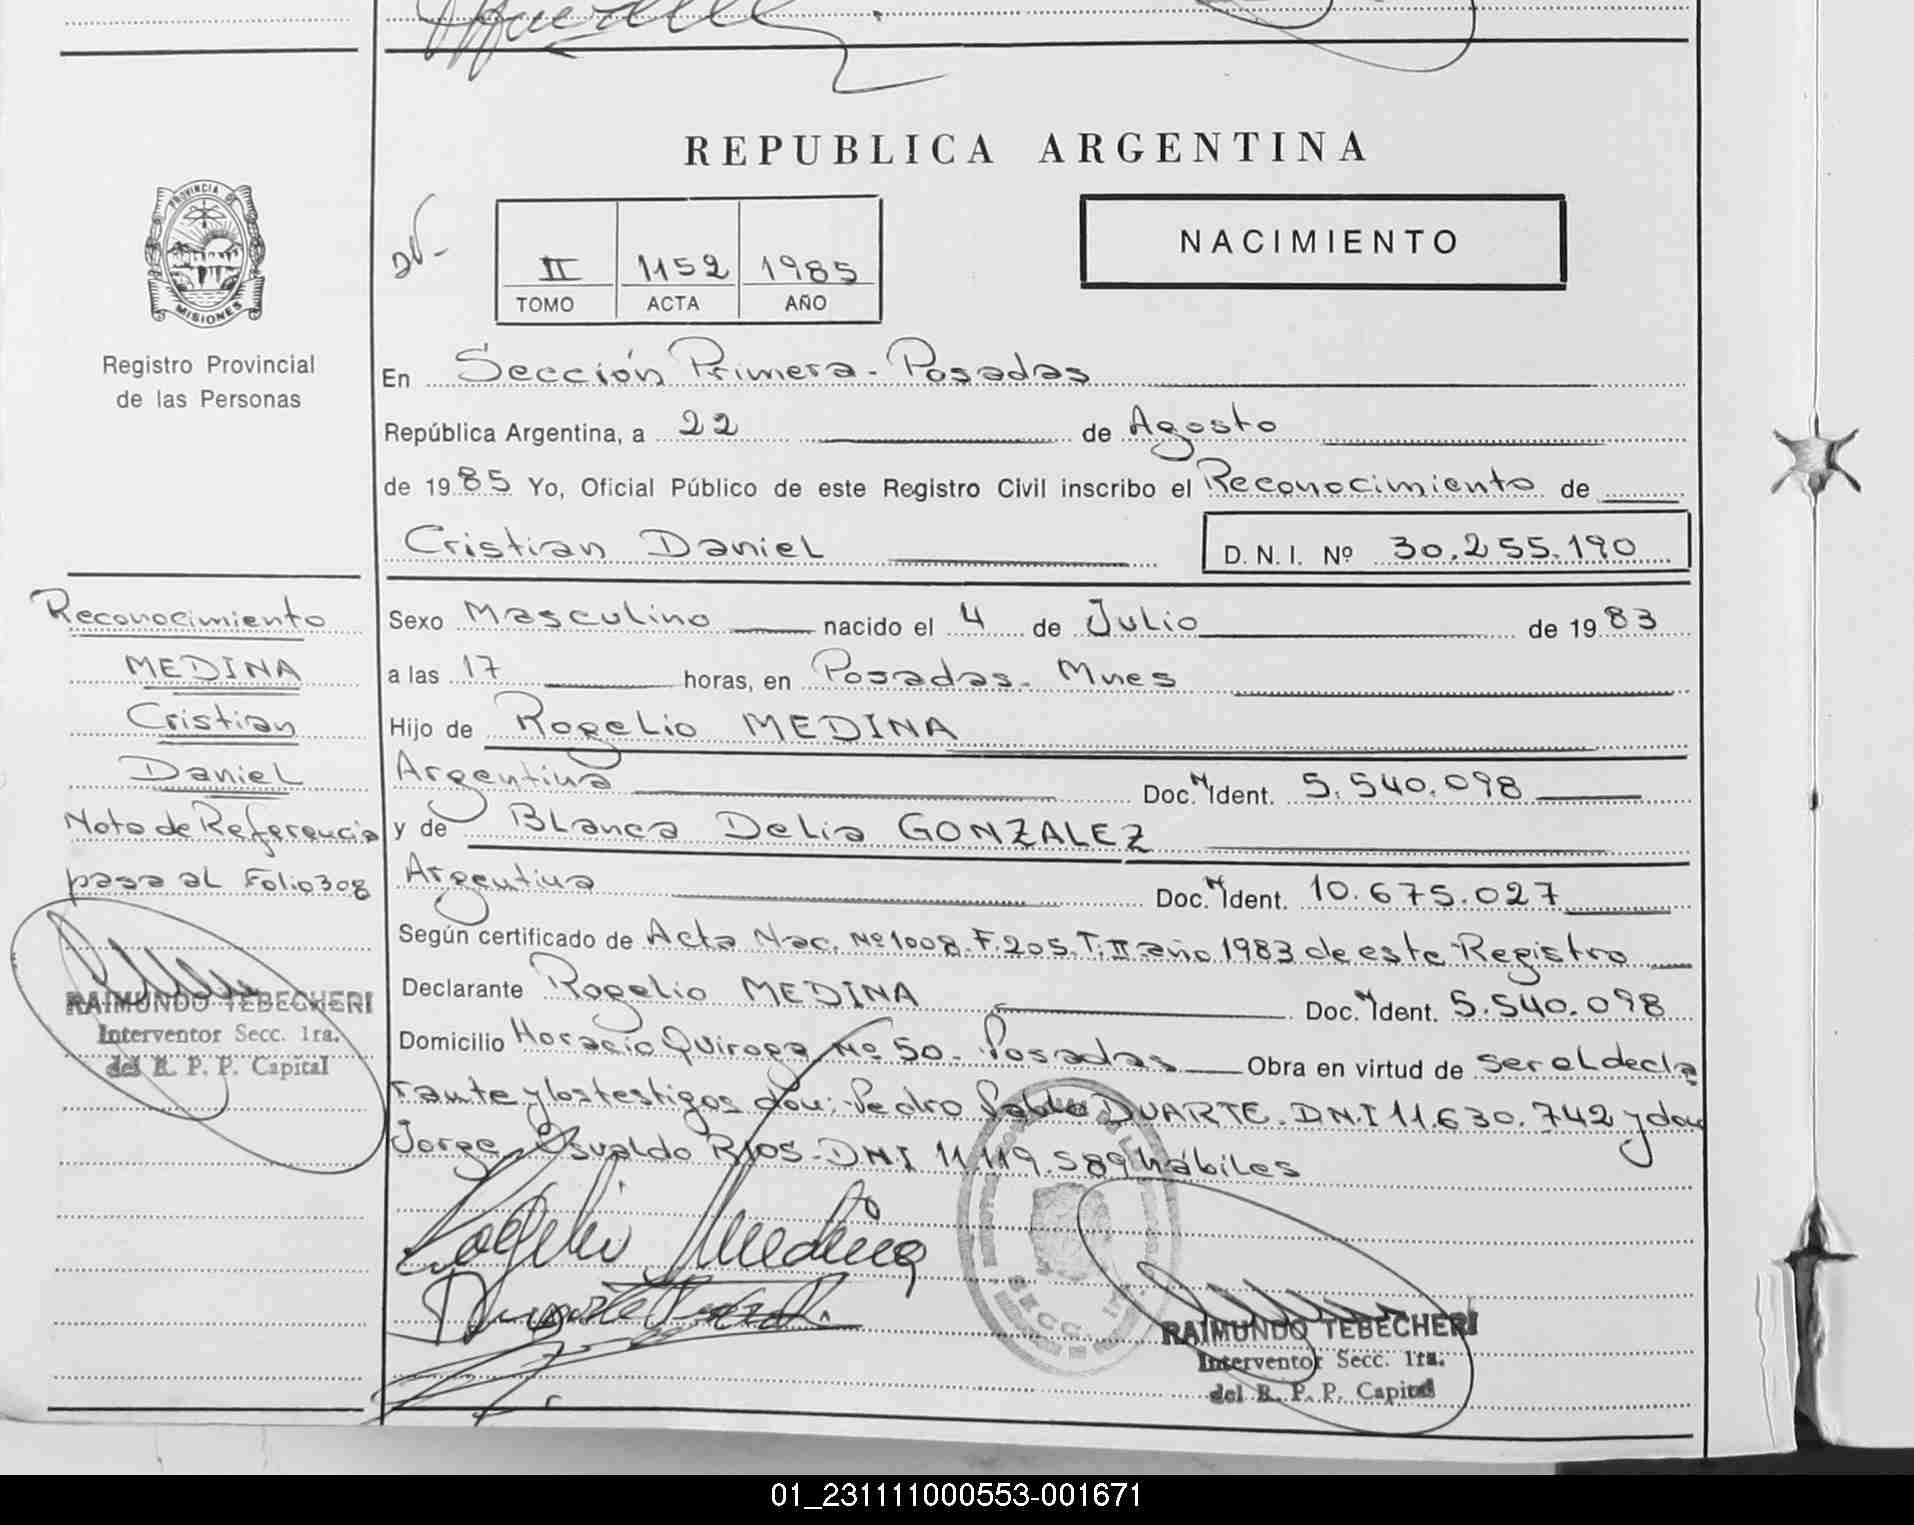 REPUBLICA ARGENTINA
PROVINCIA DE
MISIONES
Registro Provincial
de las Personas
II 1152 1985
TOMO ACTA AÑO
NACIMIENTO
En Sección Primera - Posadas
República Argentina, a 22 de Agosto
de 1985 Yo, Oficial Público de este Registro Civil inscribo el Reconocimiento de
Cristian Daniel D.N.I. Nº 30.255.190
Reconocimiento
MEDINA
Cristian
Daniel
Nota de Referencia
pasa al Folio 308
RAIMUNDO TEBECHERI
Interventor Secc. 1ra.
del R. P. P. Capital
Sexo Masculino nacido el 4 de Julio de 1983
a las 17 horas, en Posadas - Mnes
Hijo de Rogelio MEDINA
Argentina Doc. N Ident. 5.540.098
y de Blanca Delia GONZALEZ
Argentina Doc. N Ident. 10.675.027
Según certificado de Acta Nac. Nº 1008. F. 205. T. II año 1983 de este Registro
Declarante Rogelio MEDINA Doc. N Ident. 5.540.098
Domicilio Horacio Quiroga Nº 50 - Posadas Obra en virtud de ser el decla
rante y los testigos don: Pedro Pablo DUARTE. DNI 11.630.742 y don
Jorge Osvaldo RIOS - DNI 11.119.589 hábiles
Rogelio Medina
SECC. 1ra.
RAIMUNDO TEBECHERI
Interventor Secc. 1ra.
del R. P. P. Capital
01_231111000553-001671